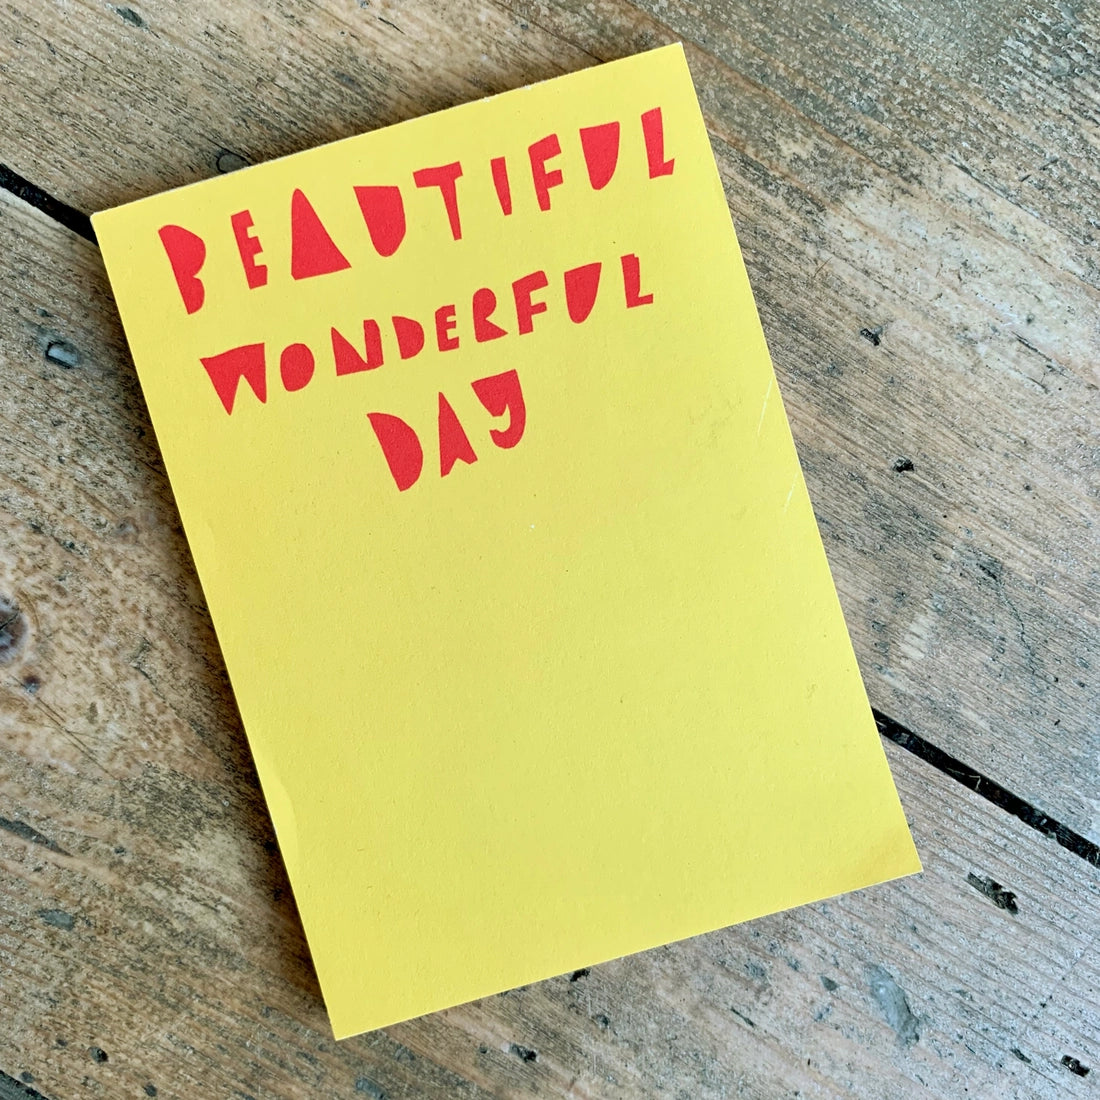 BEAUTIFUL
WONDERFUL
DAY